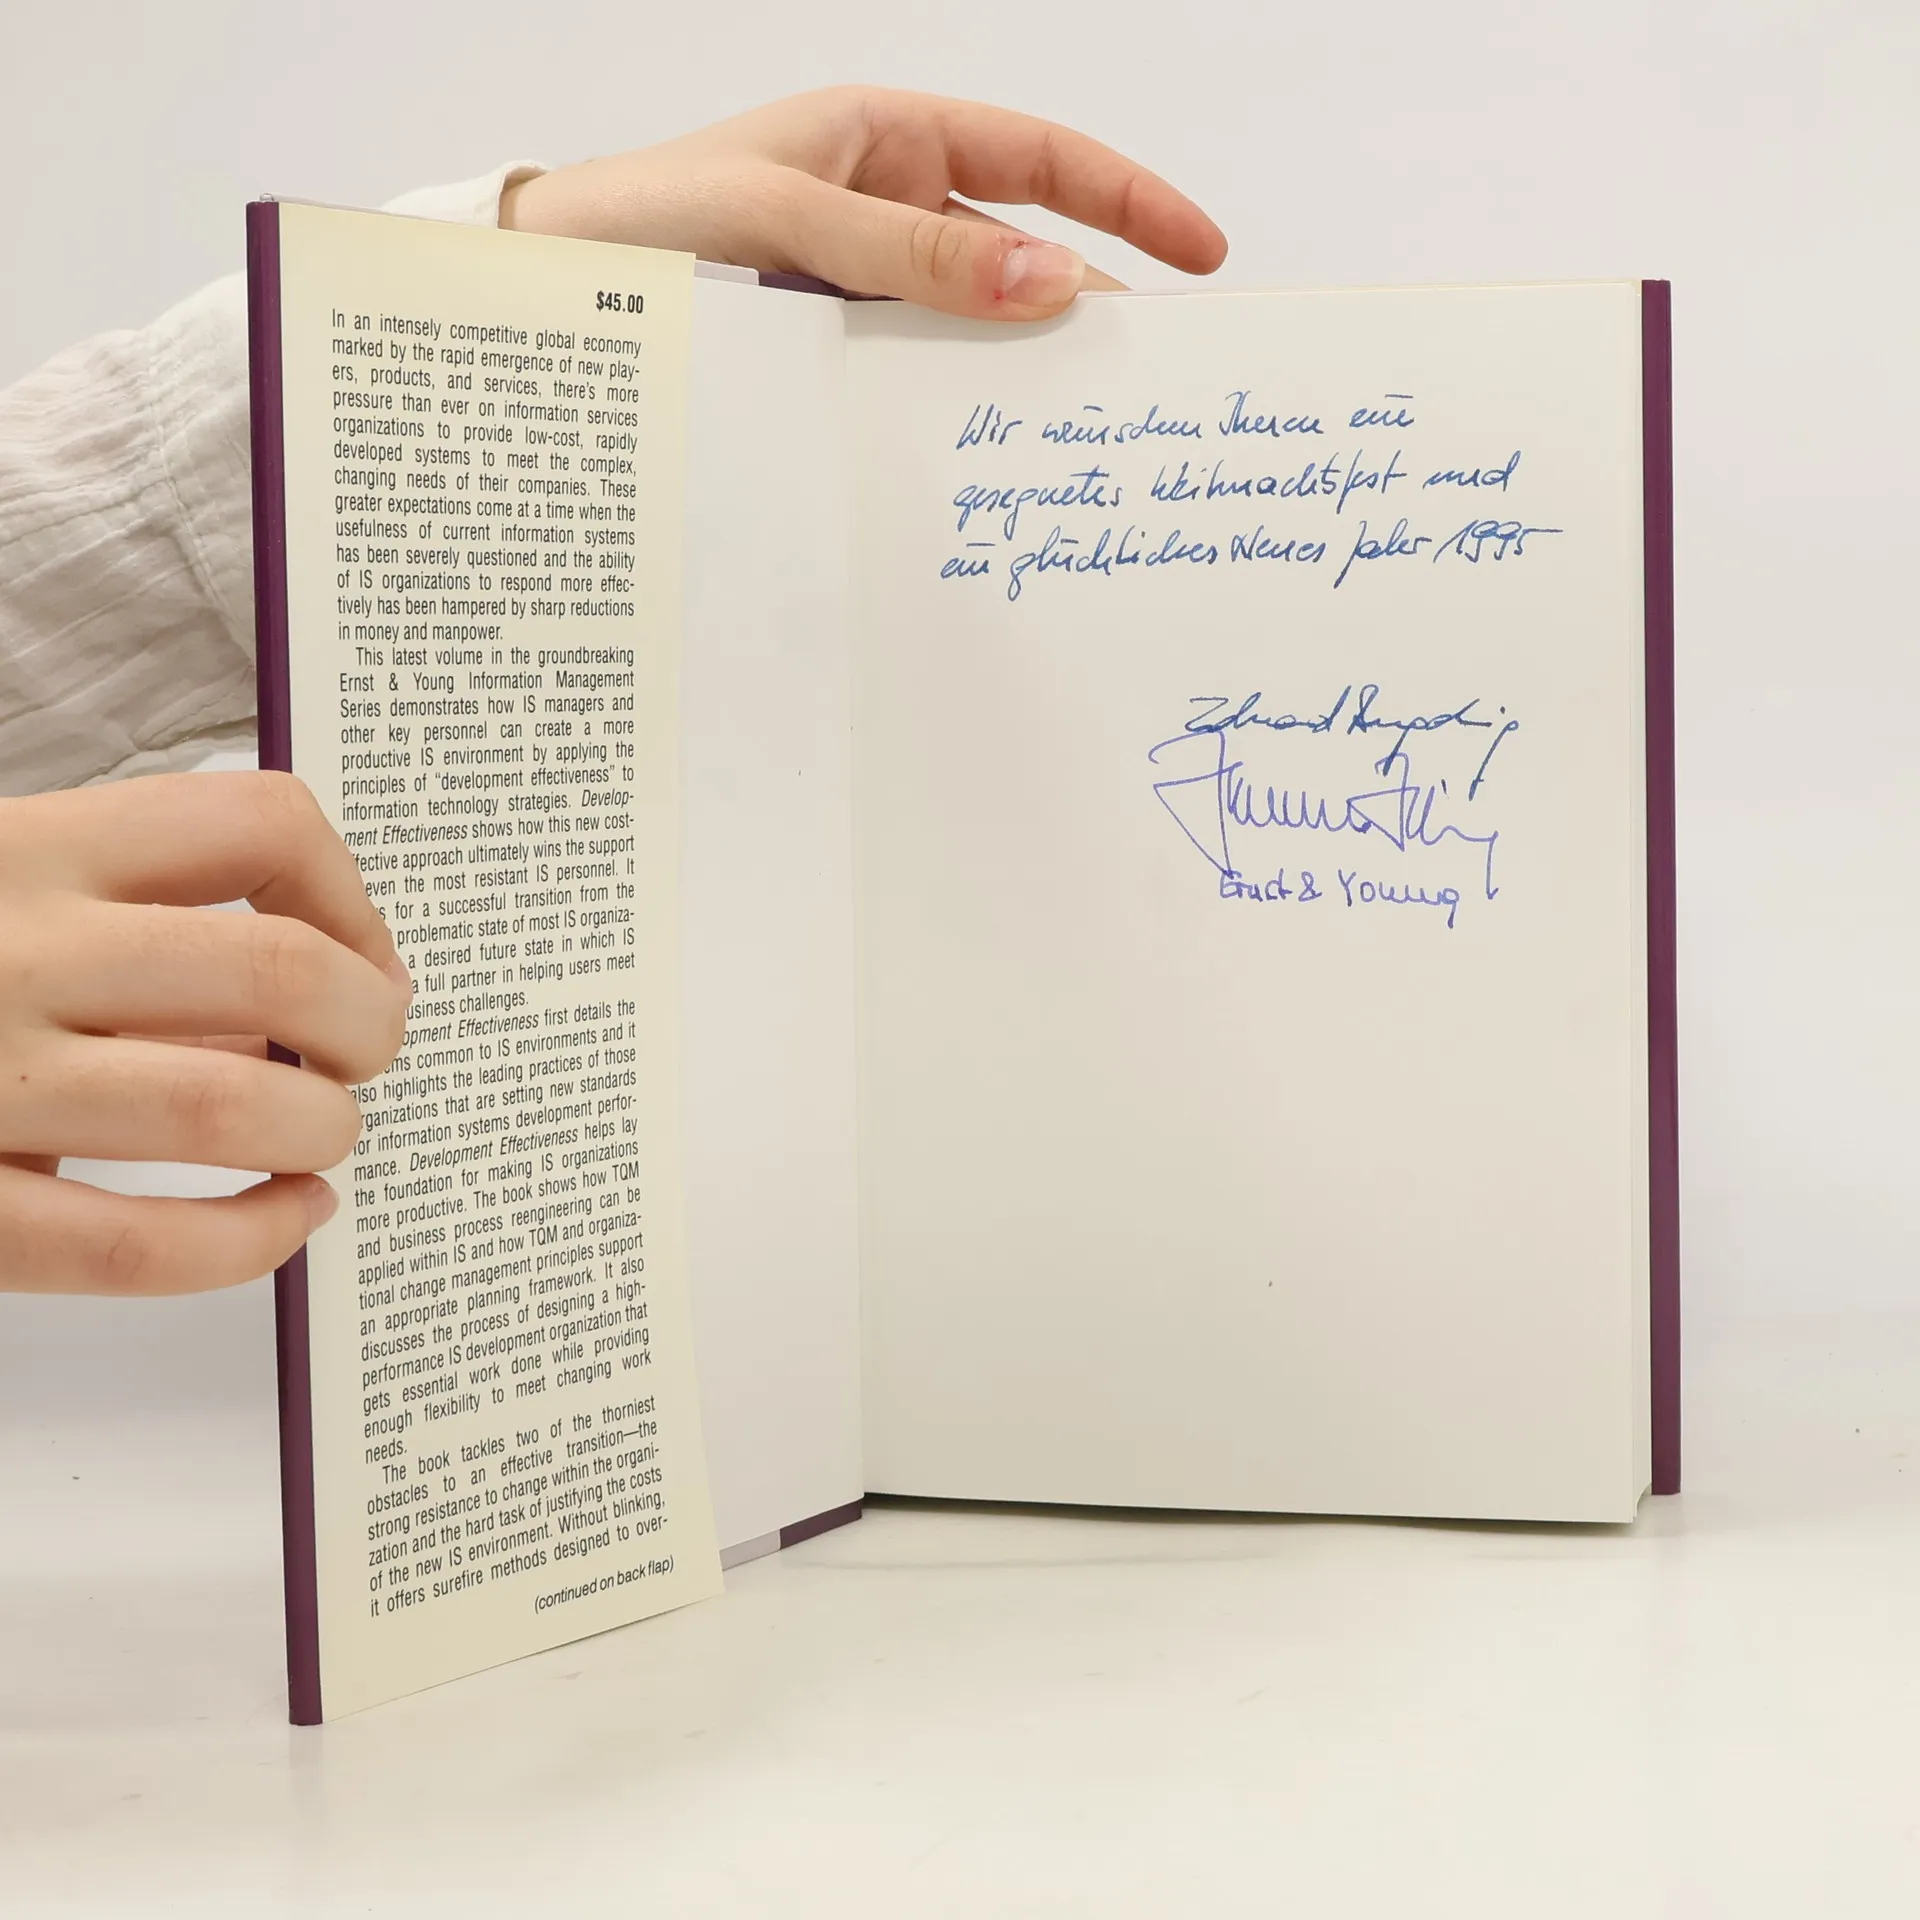 $45.00
In an intensely competitive global economy
marked by the rapid emergence of new play-
ers, products, and services, there's more
pressure than ever on information services
organizations to provide low-cost, rapidly
developed systems to meet the complex,
changing needs of their companies. These
greater expectations come at a time when the
usefulness of current information systems
has been severely questioned and the ability
of IS organizations to respond more effec-
tively has been hampered by sharp reductions
in money and manpower.
This latest volume in the groundbreaking
Ernst & Young Information Management
Series demonstrates how IS managers and
other key personnel can create a more
productive IS environment by applying the
principles of “development effectiveness” to
information technology strategies. Develop-
ment Effectiveness shows how this new cost-
ffective approach ultimately wins the support
even the most resistant IS personnel. It
s for a successful transition from the
problematic state of most IS organiza-
a desired future state in which IS
a full partner in helping users meet
usiness challenges.
opment Effectiveness first details the
ms common to IS environments and it
also highlights the leading practices of those
rganizations that are setting new standards
for information systems development perfor-
mance. Development Effectiveness helps lay
the foundation for making IS organizations
more productive. The book shows how TQM
and business process reengineering can be
applied within IS and how TQM and organiza-
tional change management principles support
an appropriate planning framework. It also
discusses the process of designing a high-
performance IS development organization that
gets essential work done while providing
enough flexibility to meet changing work
needs.
The book tackles two of the thorniest
obstacles to an effective transition—the
strong resistance to change within the organi-
zation and the hard task of justifying the costs
of the new IS environment. Without blinking,
it offers surefire methods designed to over-
(continued on back flap)
Wir wünschen Ihnen ein
gesegnetes Weihnachtsfest und
ein glückliches Neues Jahr 1995
Ernst & Young